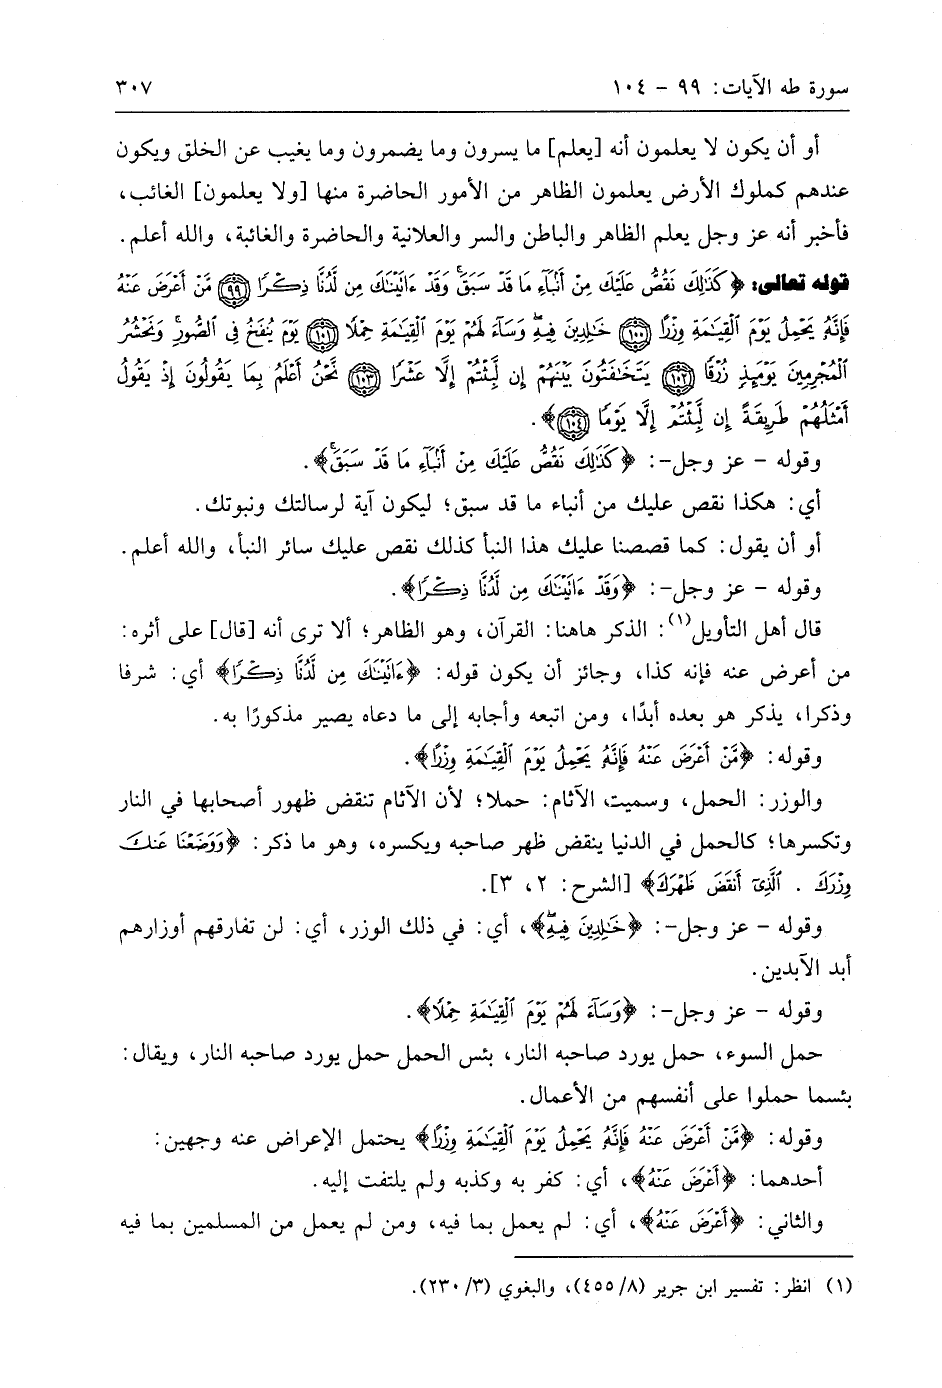 سورة طه الآيات: ٩٩ - ١٠٤ ٣٠٧
أو أن يكون لا يعلمون أنه [يعلم] ما يسرون وما يضمرون وما يغيب عن الخلق ويكون
عندهم كملوك الأرض يعلمون الظاهر من الأمور الحاضرة منها [ولا يعلمون] الغائب،
فأخبر أنه عز وجل يعلم الظاهر والباطن والسر والعلانية والحاضرة والغائبة، والله أعلم.
قوله تعالى: ﴿كَذَٰلِكَ نَقُصُّ عَلَيْكَ مِنْ أَنۢبَآءِ مَا قَدْ سَبَقَ ۚ وَقَدْ ءَاتَيْنَٰكَ مِن لَّدُنَّا ذِكْرًا ﴿٩٩﴾ مَّنْ أَعْرَضَ عَنْهُ
فَإِنَّهُۥ يَحْمِلُ يَوْمَ ٱلْقِيَٰمَةِ وِزْرًا ﴿١٠٠﴾ خَٰلِدِينَ فِيهِ ۖ وَسَآءَ لَهُمْ يَوْمَ ٱلْقِيَٰمَةِ حِمْلًا ﴿١٠١﴾ يَوْمَ يُنفَخُ فِى ٱلصُّورِ ۚ وَنَحْشُرُ
ٱلْمُجْرِمِينَ يَوْمَئِذٍ زُرْقًا ﴿١٠٢﴾ يَتَخَٰفَتُونَ بَيْنَهُمْ إِن لَّبِثْتُمْ إِلَّا عَشْرًا ﴿١٠٣﴾ نَّحْنُ أَعْلَمُ بِمَا يَقُولُونَ إِذْ يَقُولُ
أَمْثَلُهُمْ طَرِيقَةً إِن لَّبِثْتُمْ إِلَّا يَوْمًا ﴿١٠٤﴾﴾.
وقوله - عز وجل-: ﴿كَذَٰلِكَ نَقُصُّ عَلَيْكَ مِنْ أَنۢبَآءِ مَا قَدْ سَبَقَ ۚ﴾.
أي: هكذا نقص عليك من أنباء ما قد سبق؛ ليكون آية لرسالتك ونبوتك.
أو أن يقول: كما قصصنا عليك هذا النبأ كذلك نقص عليك سائر النبأ، والله أعلم.
وقوله - عز وجل-: ﴿وَقَدْ ءَاتَيْنَٰكَ مِن لَّدُنَّا ذِكْرًا﴾.
قال أهل التأويل(١): الذكر هاهنا: القرآن، وهو الظاهر؛ ألا ترى أنه [قال] على أثره:
من أعرض عنه فإنه كذا، وجائز أن يكون قوله: ﴿ءَاتَيْنَٰكَ مِن لَّدُنَّا ذِكْرًا﴾ أي: شرفا
وذكرا، يذكر هو بعده أبدًا، ومن اتبعه وأجابه إلى ما دعاه يصير مذكورًا به.
وقوله: ﴿مَّنْ أَعْرَضَ عَنْهُ فَإِنَّهُۥ يَحْمِلُ يَوْمَ ٱلْقِيَٰمَةِ وِزْرًا﴾.
والوزر: الحمل، وسميت الآثام: حملا؛ لأن الآثام تنقض ظهور أصحابها في النار
وتكسرها؛ كالحمل في الدنيا ينقض ظهر صاحبه ويكسره، وهو ما ذكر: ﴿وَوَضَعْنَا عَنكَ
وِزْرَكَ . ٱلَّذِىٓ أَنقَضَ ظَهْرَكَ﴾ [الشرح: ٢، ٣].
وقوله - عز وجل-: ﴿خَٰلِدِينَ فِيهِ ۖ﴾، أي: في ذلك الوزر، أي: لن تفارقهم أوزارهم
أبد الآبدين.
وقوله - عز وجل-: ﴿وَسَآءَ لَهُمْ يَوْمَ ٱلْقِيَٰمَةِ حِمْلًا﴾.
حمل السوء، حمل يورد صاحبه النار، بئس الحمل حمل يورد صاحبه النار، ويقال:
بئسما حملوا على أنفسهم من الأعمال.
وقوله: ﴿مَّنْ أَعْرَضَ عَنْهُ فَإِنَّهُۥ يَحْمِلُ يَوْمَ ٱلْقِيَٰمَةِ وِزْرًا﴾ يحتمل الإعراض عنه وجهين:
أحدهما: ﴿أَعْرَضَ عَنْهُ﴾، أي: كفر به وكذبه ولم يلتفت إليه.
والثاني: ﴿أَعْرَضَ عَنْهُ﴾، أي: لم يعمل بما فيه، ومن لم يعمل من المسلمين بما فيه
(١) انظر: تفسير ابن جرير (٨/٤٥٥)، والبغوي (٣/٢٣٠).